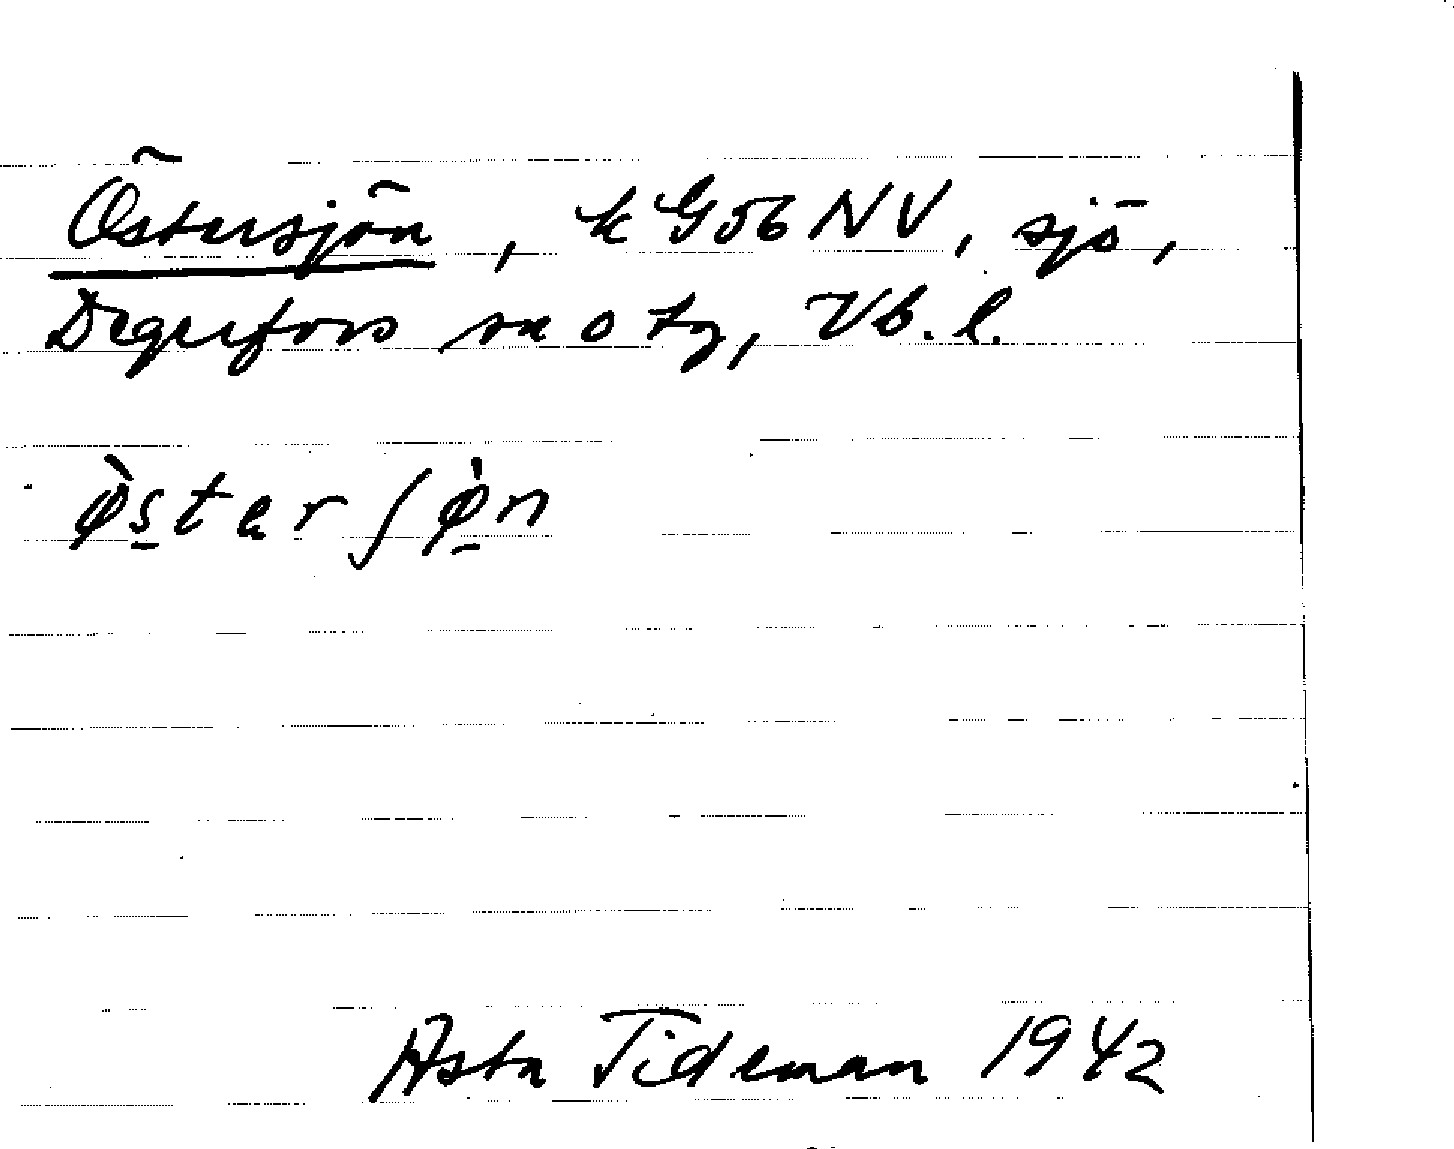 Östersjön, k G56 NV, sjö,
Degerfors sn o tg, Vb. l.
ø̀s̲tarʃø̲̀n
Asta Tideman 1942